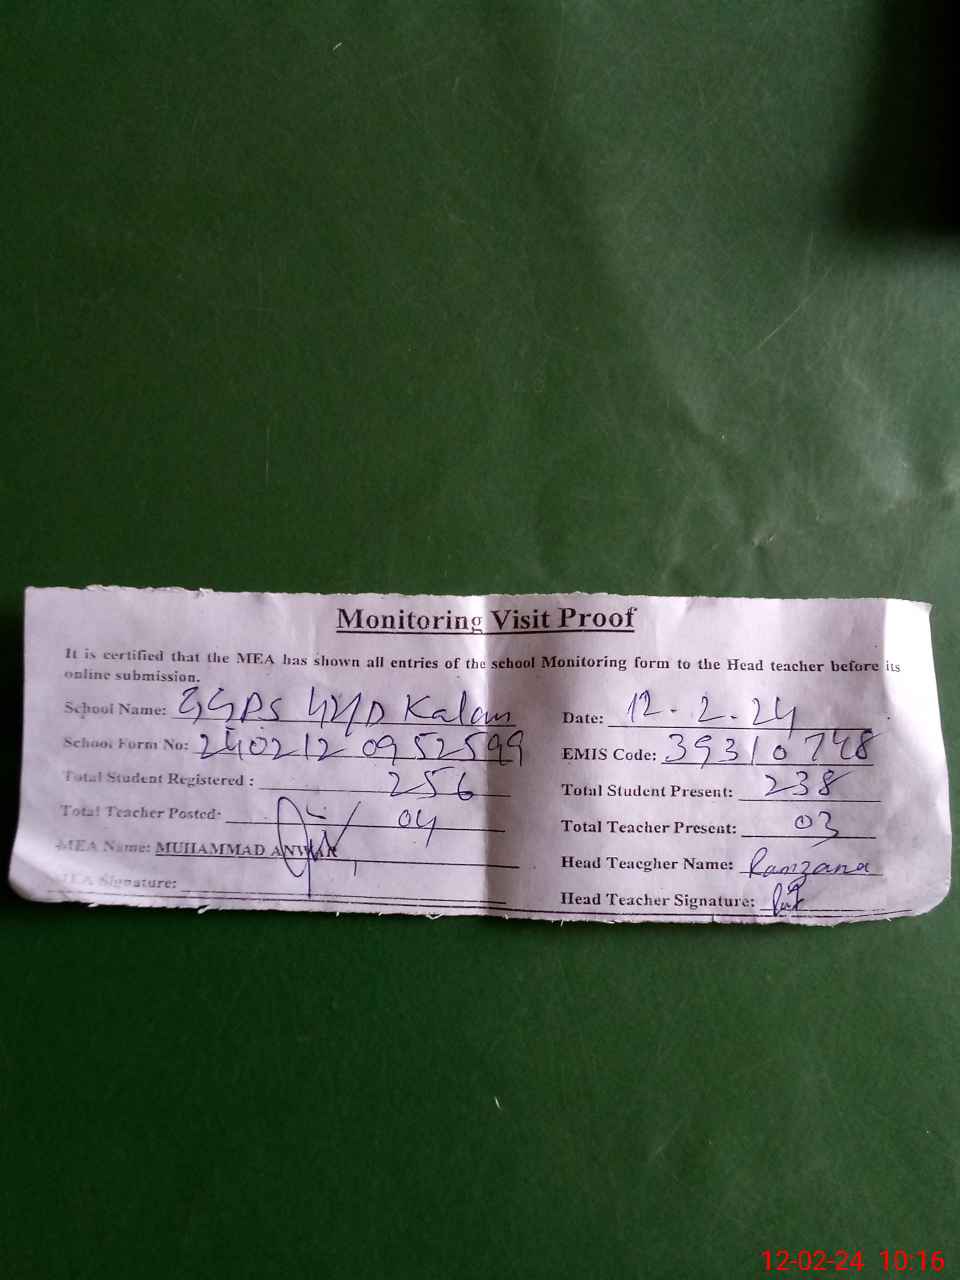 Monitoring Visit Proof
It is certified that the MEA has shown all entries of the school Monitoring form to the Head teacher before its
online submission.
School Name: GGPS 44/D Kalan
Date: 12-2-24
School Form No: 240212 0952599
EMIS Code: 39310748
Total Student Registered : 256
Total Student Present: 238
Total Teacher Posted: 04
Total Teacher Present: 03
MEA Name: MUHAMMAD ANWAR
Head Teacgher Name:
MEA Signature:
Head Teacher Signature:
12-02-24 10:16